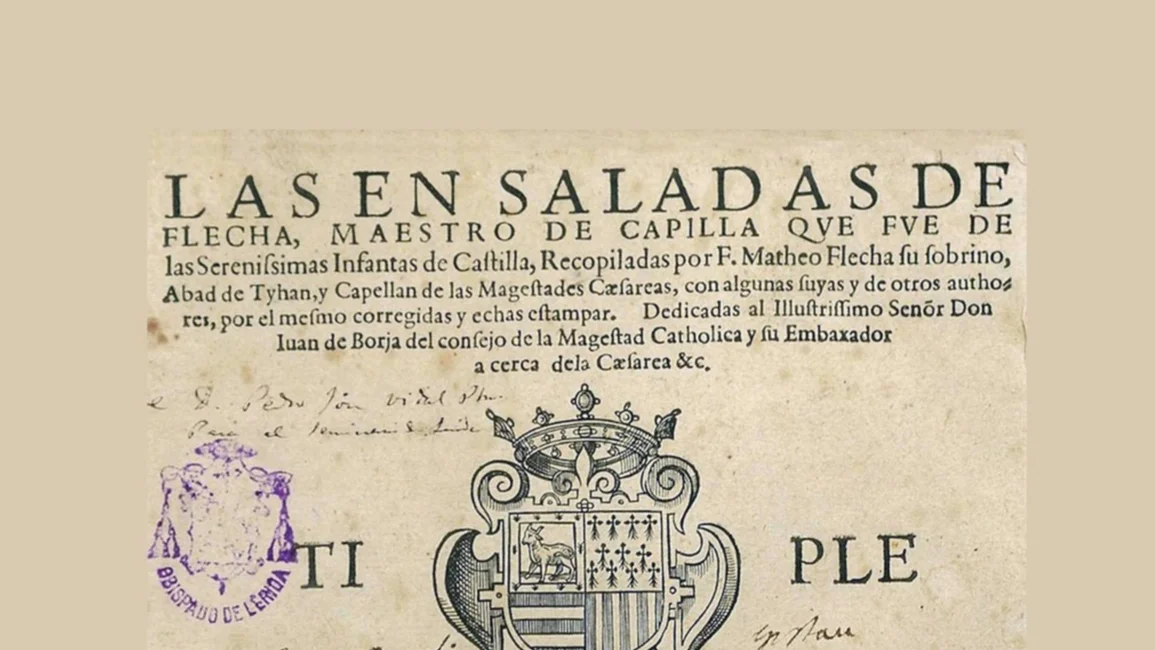 LAS EN SALADAS DE
FLECHA, MAESTRO DE CAPILLA QVE FVE DE
las Sereniſsimas Infantas de Caſtilla, Recopiladas por F. Matheo Flecha ſu ſobrino,
Abad de Tyhan, y Capellan de las Mageſtades Cæſareas, con algunas ſuyas y de otros autho-
res, por el meſmo corregidas y echas eſtampar. Dedicadas al Illuſtriſſimo Senõr Don
Iuan de Borja del conſejo de la Mageſtad Catholica y ſu Embaxador
a cerca dela Cæſarea &c.
D. Pedro Vidal
Para el
TI PLE
OBISPADO DE LÉRIDA